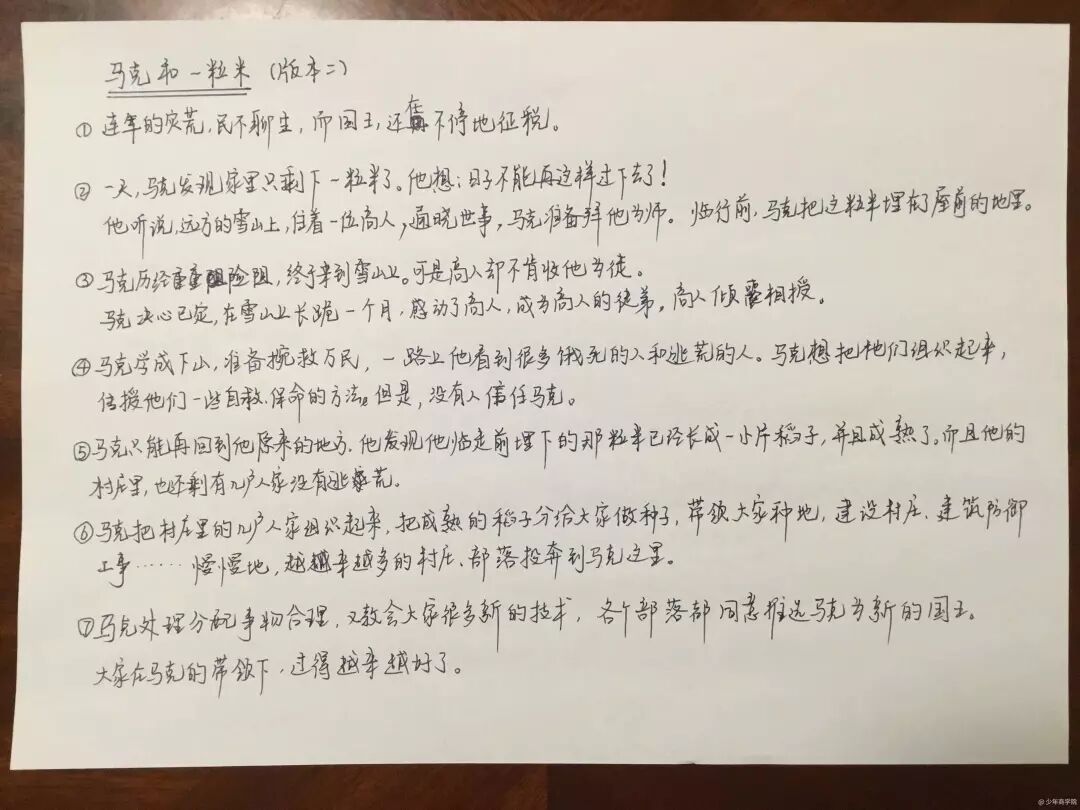 马克和一粒米(版本二)
① 连年的灾荒,民不聊生,而国王,还在不停地征税。
② 一天,马克发现家里只剩下一粒米了。他想:日子不能再这样过下去了!
他听说,远方的雪山上,住着一位高人,通晓世事,马克准备拜他为师。临行前,马克把这粒米埋在了屋前的地里。
③ 马克历经重重险阻,终于来到雪山上。可是高人却不肯收他为徒。
马克决心已定,在雪山上长跪一个月,感动了高人,成为高人的徒弟,高人倾囊相授。
④ 马克学成下山,准备挽救万民,一路上他看到很多饿死的人和逃荒的人。马克想把他们组织起来,
传授他们一些自救、保命的方法。但是,没有人信任马克。
⑤ 马克只能再回到他原来的地方。他发现他临走前埋下的那粒米已经长成一小片稻子,并且成熟了。而且他的
村庄里,也还剩有几户人家没有逃荒。
⑥ 马克把村庄里的几户人家组织起来,把成熟的稻子分给大家做种子,带领大家种地,建设村庄、建筑防御
工事……慢慢地,越来越多的村庄、部落投奔到马克这里。
⑦ 马克处理分配事物合理,又教会大家很多新的技术,各个部落都同意推选马克当新的国王。
大家在马克的带领下,过得越来越好了。
@少年商学院